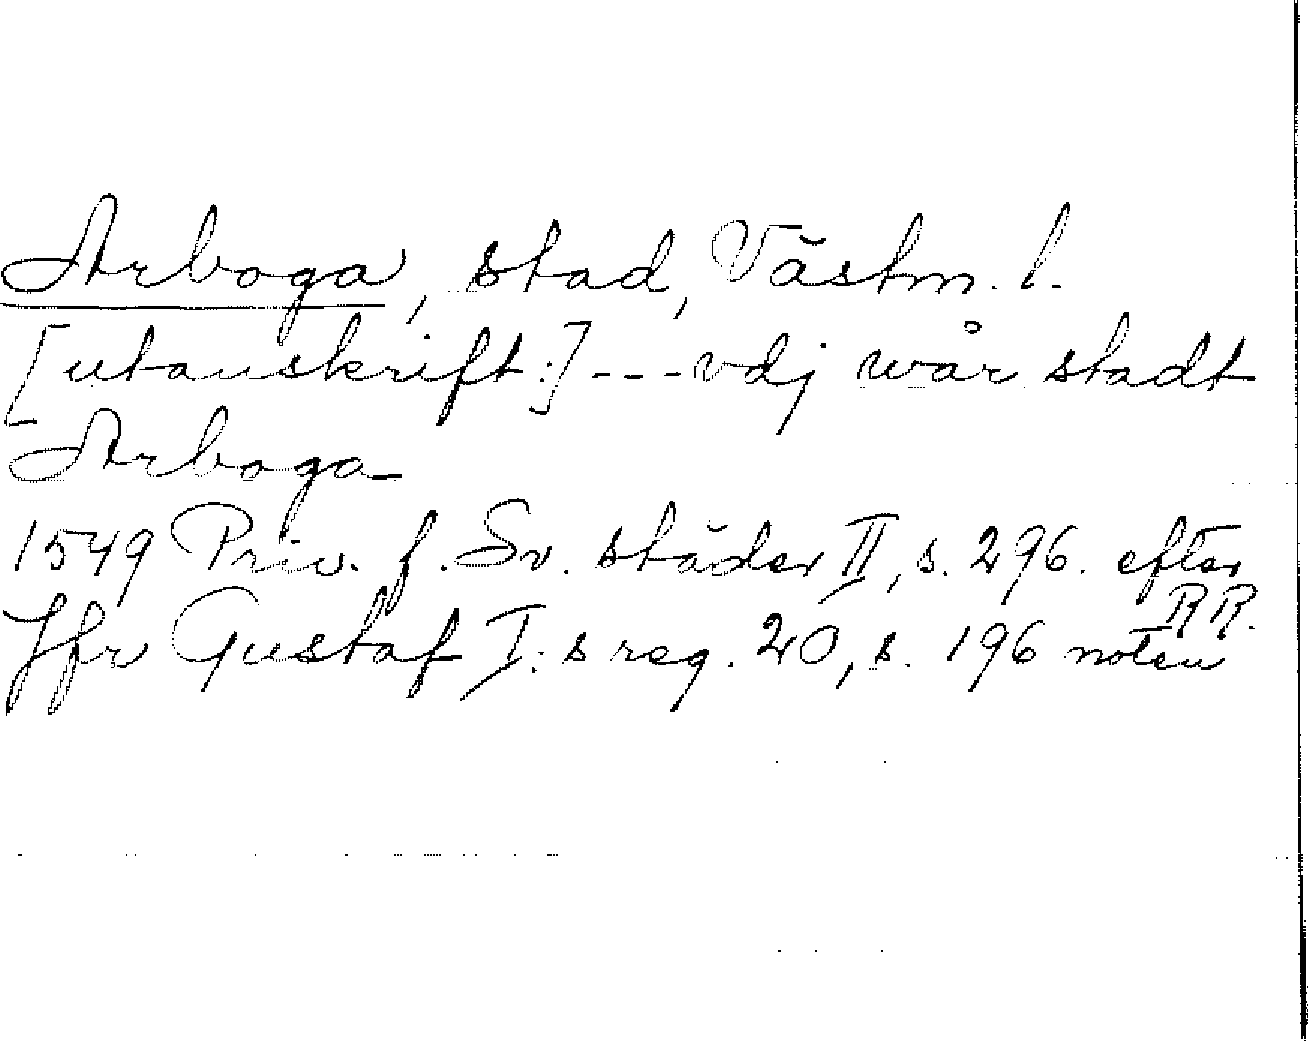 Arboga, stad, Västm. l.
[utanskrift:] --- vdj wår stadt
Arboga
1549 Priv. f. Sv. städer II, s. 296. efter
RR.
Jfr Gustaf I:s reg. 20, s. 196 noten